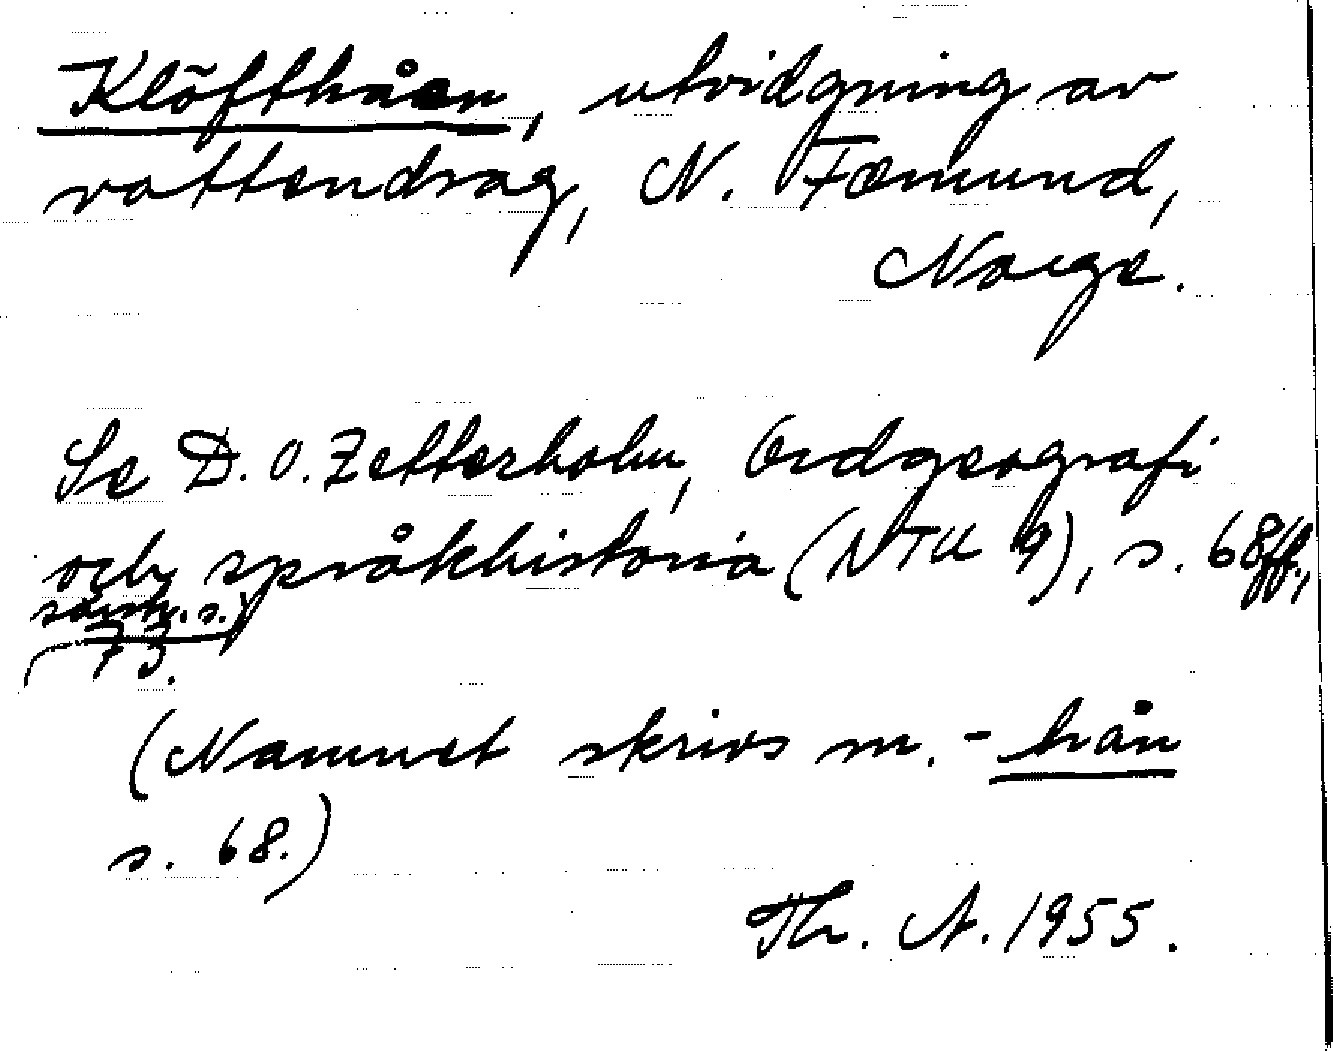 Klöfthåen, utvidgning av
vattendrag, N. Fæmund,
Norge.
Se D. O. Zetterholm, Ordgeografi
och språkhistoria (NTU 9), s. 68ff.,
särsk. s.
73.
(Namnet skrivs m. -hån
s. 68.)
Th. A. 1955.